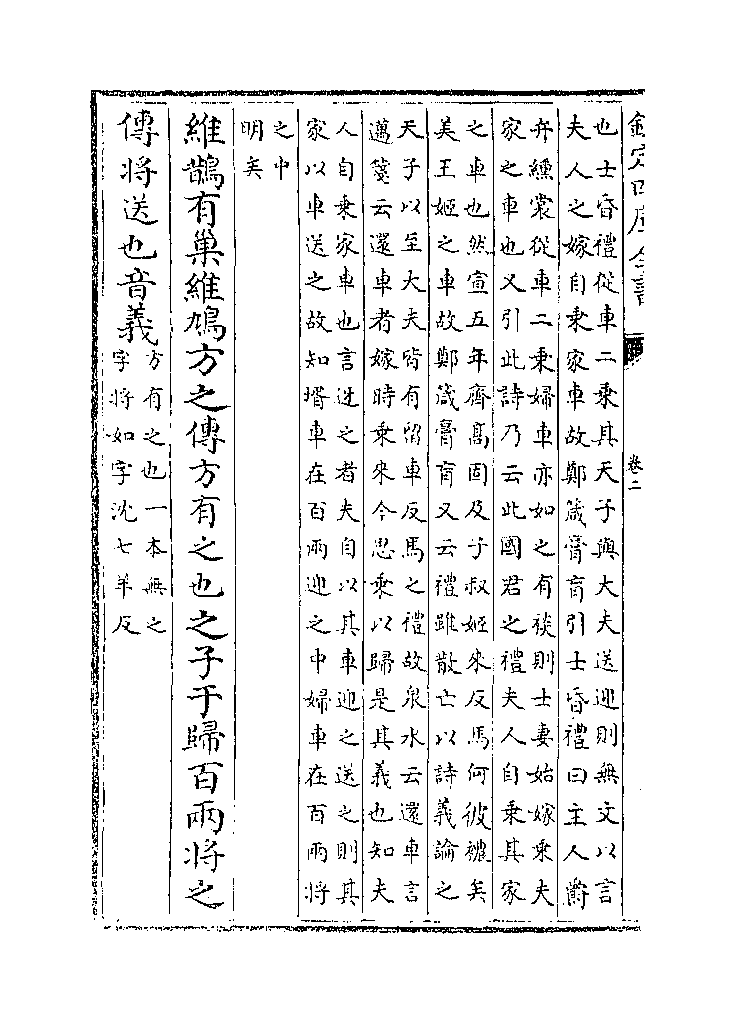 欽定四庫全書
卷二
也士昏禮從車二乘其天子與大夫送迎則無文以言
夫人之嫁自乘家車故鄭箴膏肓引士昏禮曰主人爵
弁纁裳從車二乘婦車亦如之有裧則士妻始嫁乘夫
家之車也又引此詩乃云此國君之禮夫人自乘其家
之車也然宣五年齊髙固及子叔姬來反馬何彼襛矣
美王姬之車故鄭箴膏肓又云禮雖散亡以詩義論之
天子以至大夫皆有留車反馬之禮故泉水云還車言
邁箋云還車者嫁時乘來今思乘以歸是其義也知夫
人自乘家車也言迓之者夫自以其車迎之送之則其
家以車送之故知壻車在百兩迎之中婦車在百兩將
之中
明矣
維鵲有巢維鳩方之傳方有之也之子于歸百兩將之
傳將送也音義
方有之也一本無之
字將如字沈七羊反